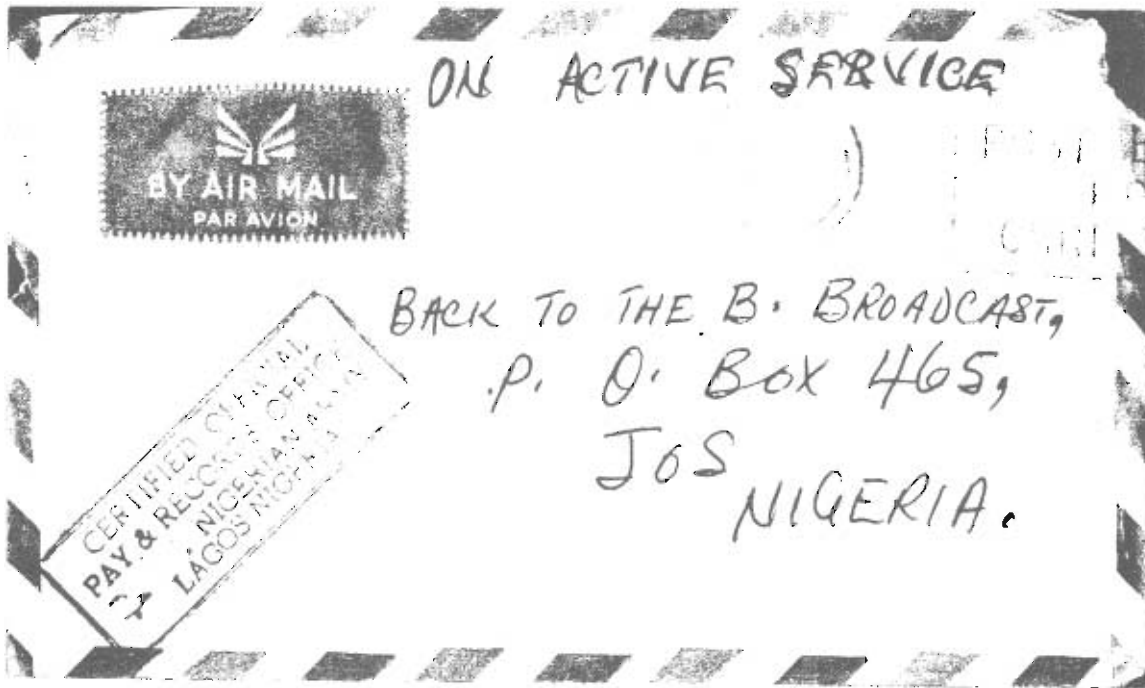 ON ACTIVE SERVICE
BY AIR MAIL
PAR AVION
BACK TO THE B. BROADCAST,
P. O. BOX 465,
JOS
NIGERIA.
CERTIFIED OFFICIAL
PAY & RECORDS OFFICE
NIGERIAN ARMY
LAGOS NIGERIA